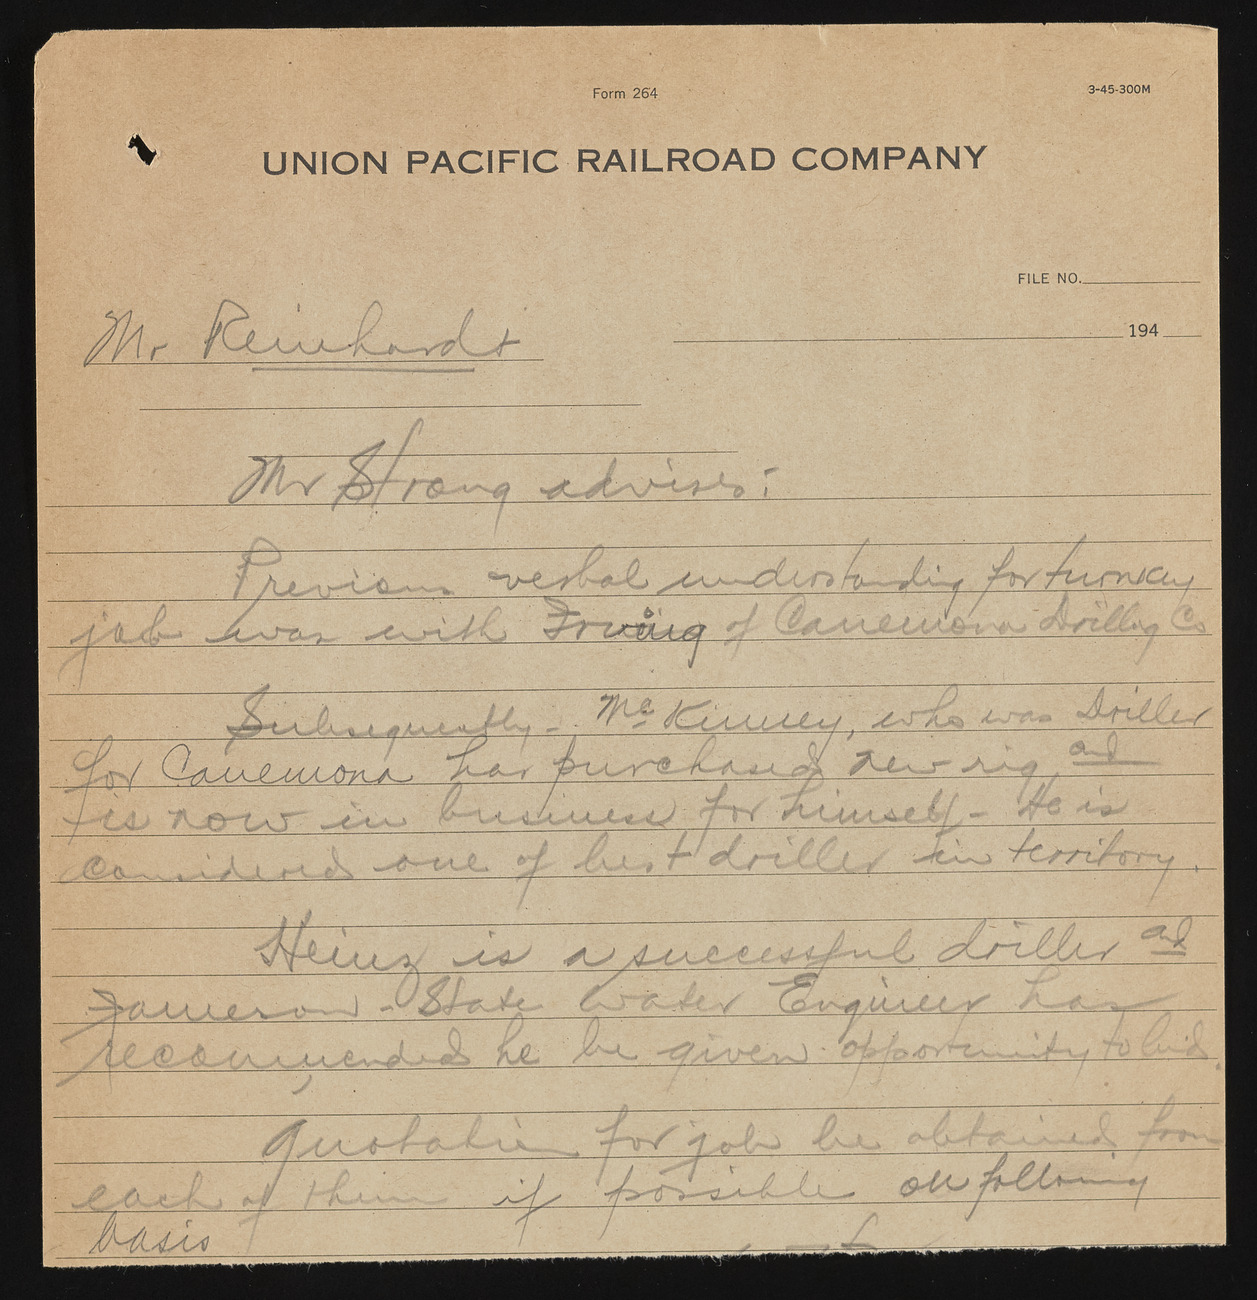 Form 264
3-45-300M
UNION PACIFIC RAILROAD COMPANY
FILE NO.
194
Mr Reinhardt
Mr Strong advises:
Previous verbal understanding for turnkey
job was with Irving of Canemona Drilling Co
Subsequently - McKinney, who was Driller
for Canemona has purchased new rig and
is now in business for himself - He is
considered one of best driller in territory.
Heinz is a successful driller and
Jameson - State Water Engineer has
recommended he be given opportunity to bid.
Quotation for job be obtained from
each of them if possible on following
basis